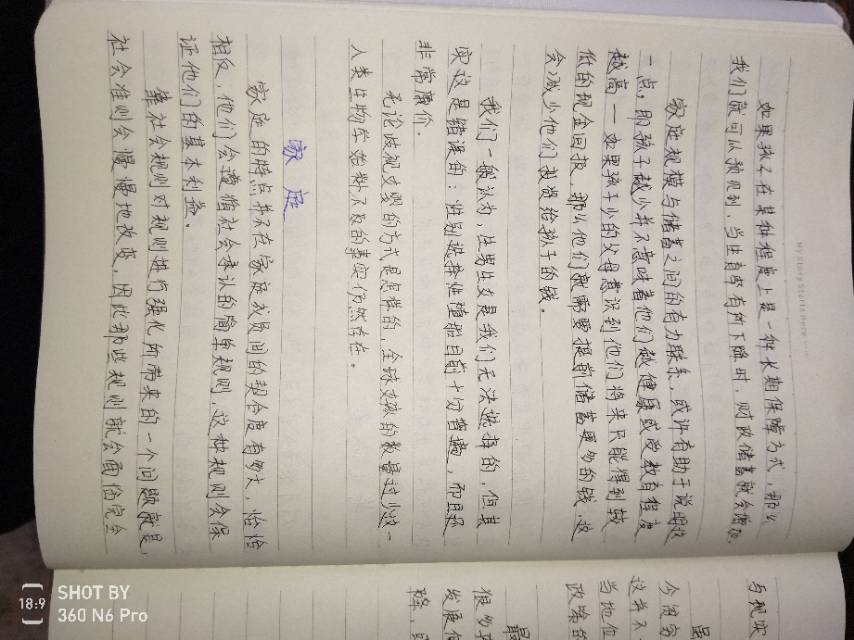 My Story Starts Here
如果孩子在某种程度上是一种长期保障方式,那么
我们就可以预见到,当生育率有所下降时,财政储蓄就会增加.
家庭规模与储蓄之间的有力联系,或许有助于说明这
一点,即孩子越少并不意味着他们越健康或受教育程度
越高—如果孩子少的父母意识到他们将来只能得到较
低的现金回报,那么他们就需要提前储蓄更多的钱,这
会减少他们投资给孩子的钱。
我们一般认为,生男生女是我们无法选择的,但其
实这是错误的:性别选择性堕胎目前十分普遍,而且还
非常廉价.
无论歧视女婴的方式是怎样的,全球女孩的数量过少这一
人类生物学推断不及的事实仍然存在。
家庭
家庭的特点并不在家庭成员间的契合度有多大,恰恰
相反,他们会遵循社会承认的简单规则,这种规则会保
证他们的基本利益.
靠社会规则对规则进行强化所带来的一个问题就是,
社会准则会慢慢地改变,因此那些规则就会面临完全
与现实
今国家
这并不
当地位
政策的
最
很多
发展
降,
SHOT BY
360 N6 Pro
18:9